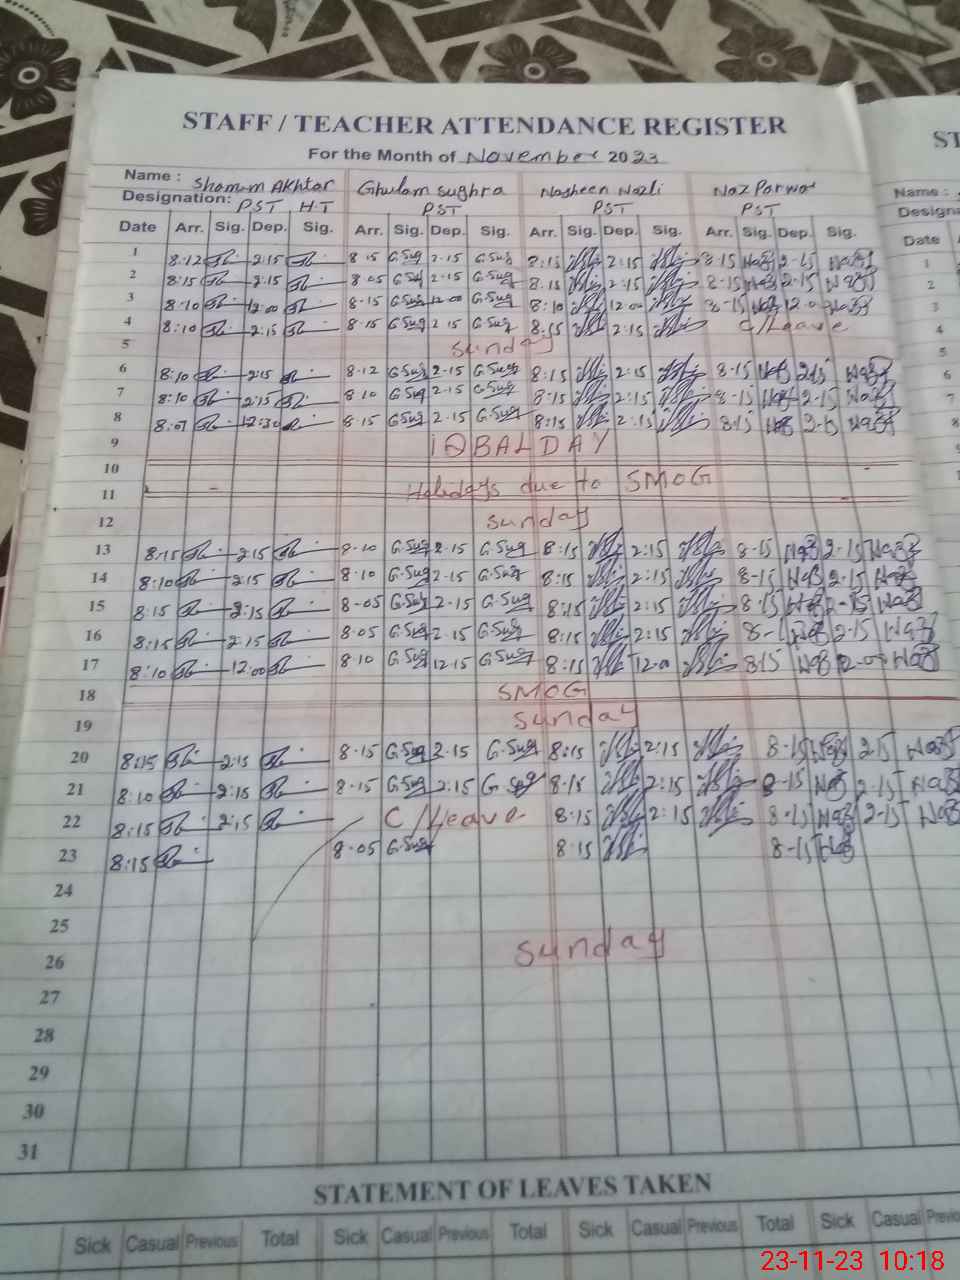 STAFF / TEACHER ATTENDANCE REGISTER
ST
For the Month of November 2023
Name : Shamim Akhtar Ghulam Sughra Nosheen Nazli Naz Parwar
Name :
Designation: PST H.T PST PST PST
Date Arr. Sig. Dep. Sig. Arr. Sig. Dep. Sig. Arr. Sig. Dep. Sig. Arr. Sig. Dep. Sig.
Date
1 8:12 2:15 8.15 G.Sug 2.15 G.Sug 8:15 2:15 8-15 Naz 2-15 Naz
2 8:15 2:15 8.05 G.Sug 2.15 G.Sug 8:15 2:15 8-15 Naz 2-15 Naz
3 8:10 12:00 8-15 G.Sug 12.00 G.Sug 8:10 12:00 8-15 Naz 12.0 Naz
4 8:10 2:15 8.15 G.Sug 2.15 G.Sug 8:15 2:15 C/Leave
5 Sunday
6 8:10 2:15 8.12 G.Sug 2-15 G.Sug 8:15 2:15 8-15 Naz 2-15 Naz
7 8:10 2:15 8.10 G.Sug 2.15 G.Sug 8:15 2:15 8-15 Naz 2-15 Naz
8 8:07 12:30 8.15 G.Sug 2.15 G.Sug 8:15 2:15 8-15 Naz 2-15 Naz
9 IQBAL DAY
10
11 Holidays due to SMOG
12 Sunday
13 8:15 2:15 8-10 G.Sug 2.15 G.Sug 8:15 2:15 8-15 Naz 2-15 Naz
14 8:10 2:15 8.10 G.Sug 2.15 G.Sug 8:15 2:15 8-15 Naz 2-15 Naz
15 8:15 2:15 8-05 G.Sug 2-15 G.Sug 8:15 2:15 8-15 Naz 2-15 Naz
16 8:15 2:15 8.05 G.Sug 2.15 G.Sug 8:15 2:15 8-1 Naz 2-15 Naz
17 8:10 12:00 8.10 G.Sug 12.15 G.Sug 8:15 12.0 8-15 Naz 12.0 Naz
18 SMOG
19 Sunday
20 8:15 2:15 8.15 G.Sug 2.15 G.Sug 8:15 2:15 8-15 Naz 2-15 Naz
21 8:10 2:15 8.15 G.Sug 2:15 G.Sug 8:15 2:15 8-15 Naz 2-15 Naz
22 8:15 2:15 C/Leave 8:15 2:15 8-15 Naz 2-15 Naz
23 8:15 8.05 G.Sug 8.15 8-15 Naz
24
25
26 Sunday
27
28
29
30
31
STATEMENT OF LEAVES TAKEN
Sick Casual Previous Total Sick Casual Previous Total Sick Casual Previous Total Sick Casual
23-11-23 10:18